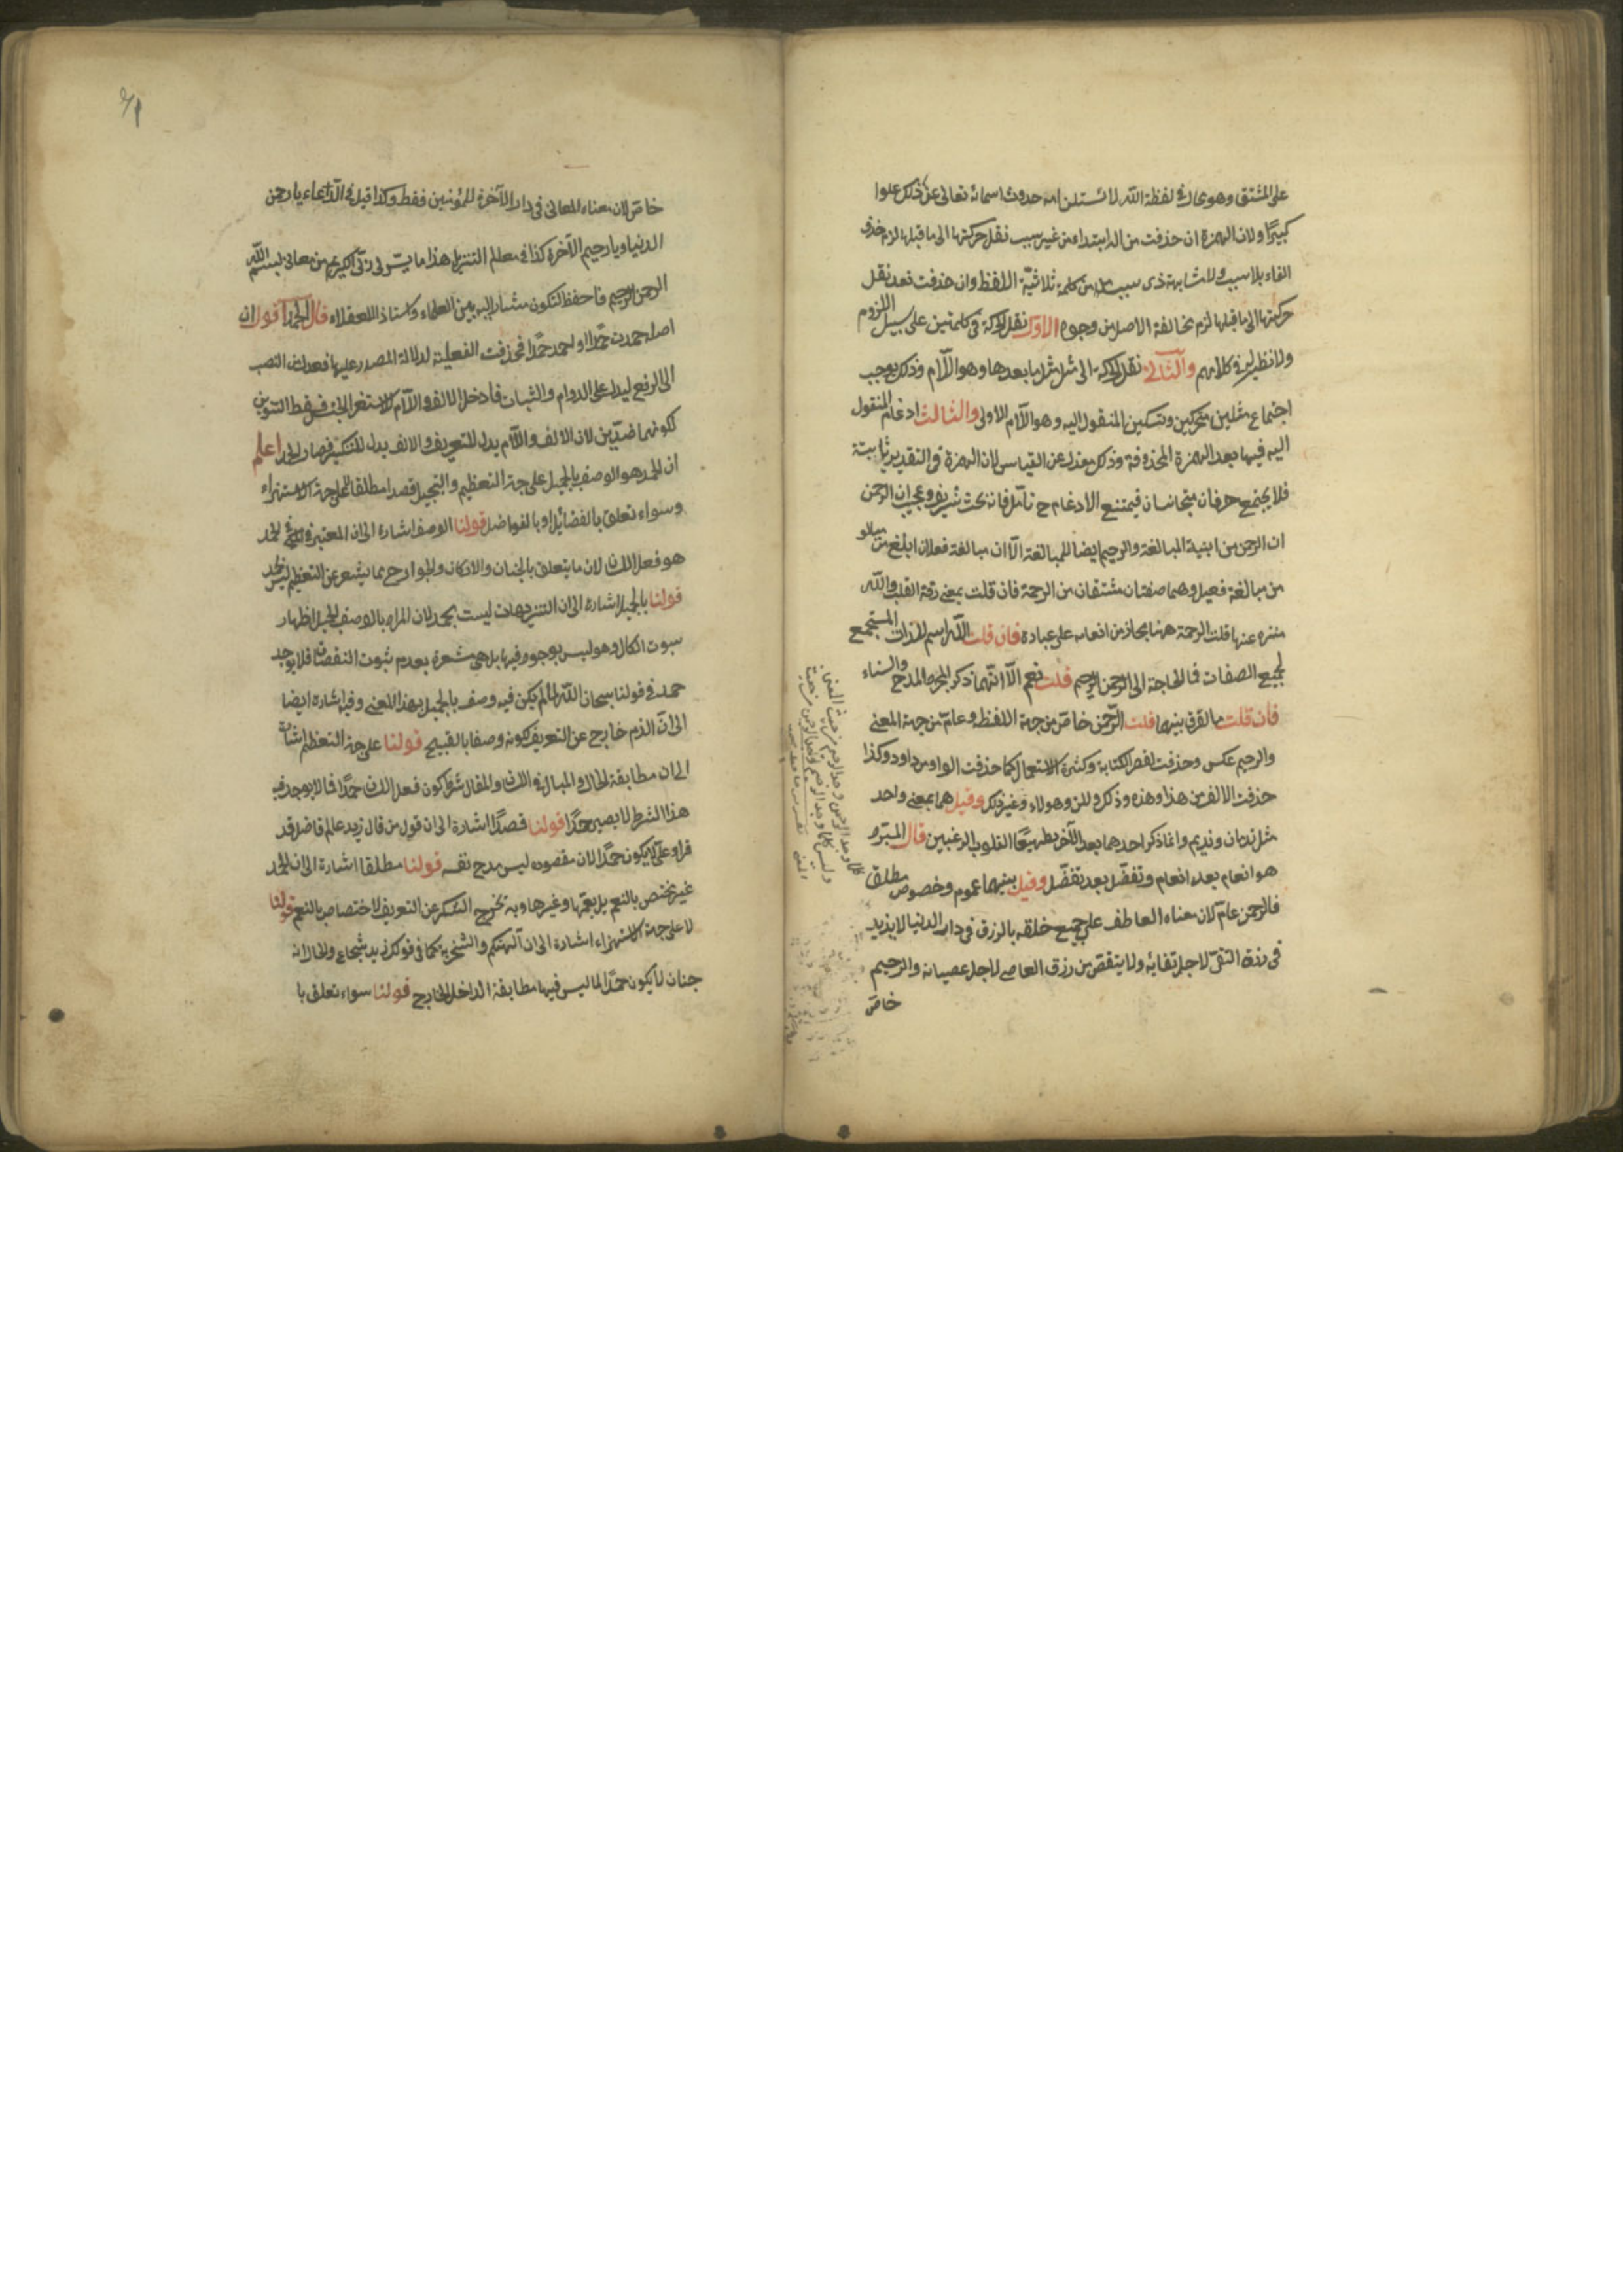 على المشتق وهو محال في لفظة الله لاستلزامه حدوث اسمائه تعالى عن ذلك علوا
كبيرًا ولان الهمزة ان حذفت من الابتداء من غير سبب نقل حركتها الى ما قبلها لزم حذف
الفاء بلا سبب ولا مشابهة ذى سبب من كلمة ثلاثيّة اللفظ وان حذفت بعد نقل
حركتها الى ما قبلها لزم مخالفة الاصل من وجوه الاوّل نقل الحركة في كلمتين على سبيل اللزوم
ولا نظير له في كلامهم والثاني نقل الحركة الى مثل ما بعدها وهو اللام وذلك يوجب
اجتماع مثلين متحركين وتسكين المنقول اليه وهو اللام الاولى والثالث ادغام المنقول
اليه فيما بعد الهمزة المحذوفة وذلك بمعزل عن القياس لان الهمزة في التقدير ثابتة
فلا يجتمع حرفان متجانسان فيمتنع الادغام ح تأمل فانه بحث شريف وعجيب ان الرحمن
ان الرحمن من ابنية المبالغة والرحيم ايضا للمبالغة الّا ان مبالغة فعلان ابلغ من
من مبالغة فعيل وهما صفتان مشتقان من الرحمة فان قلت بمعنى رقة القلب والله
منزه عنها قلت الرحمة ههنا مجاز من انعامه على عباده فان قلت الله اسم للذات المستجمع
لجميع الصفات فما الحاجة الى الرحمن الرحيم قلت نعم الّا انّهما ذكرا لمجرد المدح والثناء
فان قلت ما الفرق بينهما قلت الرّحمن خاصّ من جهة اللفظ وعامّ من جهة المعنى
والرحيم عكس وحذفت لفى الكتابة وكثرة الاستعمال كما حذفت الواو من داود وكذا
حذفت الالف من هذا وهذه وذلك ولكن وهولاء وغير ذلك وقيل هما بمعنى واحد
مثل ندمان ونديم وانما ذكر احدهما بعد الآخر تطميعًا لقلوب الراغبين قال المبرّد
هو انعام بعد انعام وتفضّل بعد تفضّل وقيل بينهما عموم وخصوص مطلق
فالرحمن عامّ لان معناه العاطف على جميع خلقه بالرزق في دار الدنيا لا يزيد
في رزق التقىّ لاجل تقائه ولا ينقص من رزق العاصى لاجل عصيانه والرحيم
خاصّ
خاصّ لان معناه المعافى في دار الآخرة للمؤمنين فقط وكذا قيل في الدّعاء يا رحمن
الدنيا ويا رحيم الآخرة كذا في معالم التنزيل هذا ما يسّر لى ربّى الكريم من معانى بسم الله
الرحمن الرحيم فاحفظ لتكون مشارا اليه بين العلماء واستاذا للعقلاء قال الحمد اقول ان
اصله حمدت حمدًا او احمد حمدًا فحذفت الفعلية لدلالة المصدر عليها فعدل من النصب
الى الرفع ليدل على الدوام والثبات فأدخل الالف واللام لاستغراق الجنس فسقط التنوين
لكونهما ضدّين لان الالف واللام يدل للتعريف والالف يدل للتنكير فصار الحمد اعلم
ان الحمد هو الوصف بالجميل على جهة التعظيم والتبجيل قصدا مطلقا لا على جهة الاستهزاء
وسواء تعلق بالفضائل او بالفواضل قولنا الوصف اشارة الى ان المعتبر في الحمد
هو فعل اللسان لان ما يتعلق بالجنان والاركان والجوارح مما يشعر عن التعظيم ليس بحمد
قولنا بالجميل اشارة الى ان التنزيهات ليست بحمد لان المراد بالوصف الجميل اظهار
ثبوت الكمال وهو ليس بوجود فيها بل هى مشعرة بعدم ثبوت النقصان فلا يوجد
حمد في قولنا سبحان الله لما لم يكن فيه وصف بالجميل بهذا المعنى وفيه اشارة ايضا
الى انّ الذم خارج عن التعريف لكونه وصفا بالقبيح قولنا على جهة التعظيم اشارة
الى ان مطابقة الحال والبال في اللسان والمقال شرط كون فعل اللسان حمدًا فما لا يوجد فيه
هذا الشرط لا يصير حمدًا قولنا قصدًا اشارة الى ان قول من قال زيد عالم فاضل قد
قرأ علىّ لا يكون حمدًا لان مقصوده ليس مدح نفسه قولنا مطلقا اشارة الى ان الحمد
غير مختص بالنعم بل يعمّها وغيرها وبه تخرج الشكر عن التعريف لاختصاصه بالنعم قولنا
لا على جهة الاستهزاء اشارة الى ان التهكم والسّخرية كما في قولك زيد شجاع والحال انه
جبان لا يكون حمدًا لما ليس فيها مطابقة الداخل الخارج قولنا سواء تعلق با